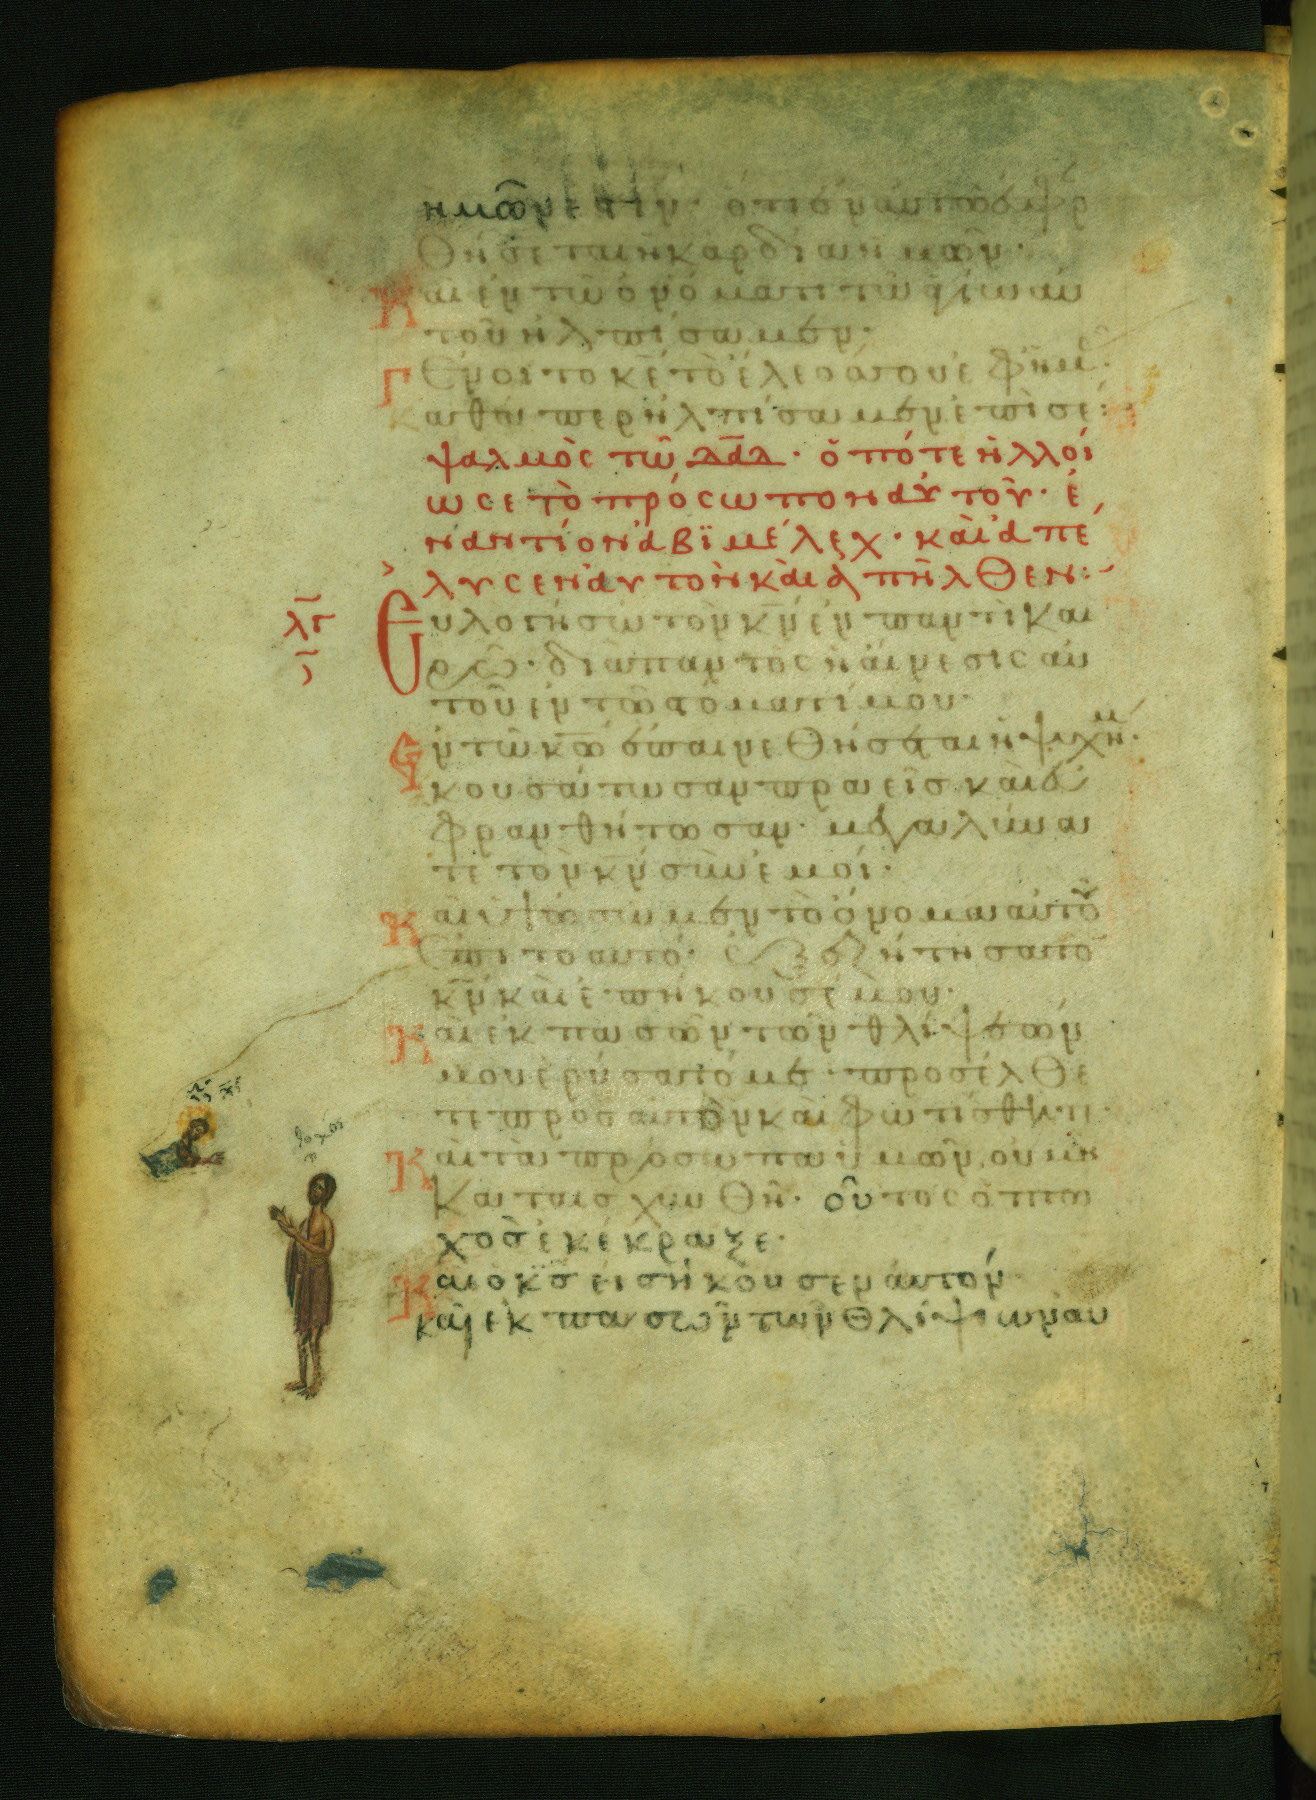 ἡμῶν ἐστιν· ὅτι ἐν αὐτῶ εὐφρ
θήσεται ἡ καρδία ἡμῶν·
Καὶ ἐν τῶ ὀνόματι τῶ ἁγίω αὐ
τοῦ ἠλπίσαμεν·
Γένοιτο κε τὸ ἔλεός σου ἐφ ημ·
καθάπερ ἠλπίσαμεν ἐπὶ σέ:
ψαλμὸς τῶ δαδ· ὁπότε ἠλλοί
ωσε τὸ πρόσωπον αυτοῦ· ἐ
ναντίον ἀβϊμέλεχ· καὶ ἀπέ
λυσεν αυτον καὶ ἀπῆλθεν:
λγ
Εὐλογήσω τὸν κν ἐν παντὶ και
ρῶ· διαπαντὸς ἡ αἴνεσις αὐ
τοῦ ἐν τῶ στόματί μου·
Ἐν τῶ κω ἐπαινεθήσεται ἡ ψυχή μ·
ἀκουσάτωσαν πραεῖς καὶ εὐ
φρανθήτωσαν· μεγαλύνα
τε τὸν κν σὺν ἐμοί·
Καὶ ὑψώσωμεν τὸ ὄνομα αὐτοῦ
ἐπιτοαυτό· ἐξεζήτησα τὸ
κν καὶ ἐπήκουσέ μου·
Καὶ ἐκ πασῶν τῶν θλίψεών
μου ἐρύσατό με· προσέλθε
τε πρὸς αὐτὸν καὶ φωτίσθητι·
Καὶ τὰ πρόσωπα ὑμῶν οὐ μὴ
καταισχυνθῆ· οὗτος ὁ πτω
χὸς ἐκέκραξε·
Καὶ ὁ κς εἰσήκουσεν αὐτοῦ
καὶ ἐκ πασῶν τῶν θλίψεων αυ
ις χς